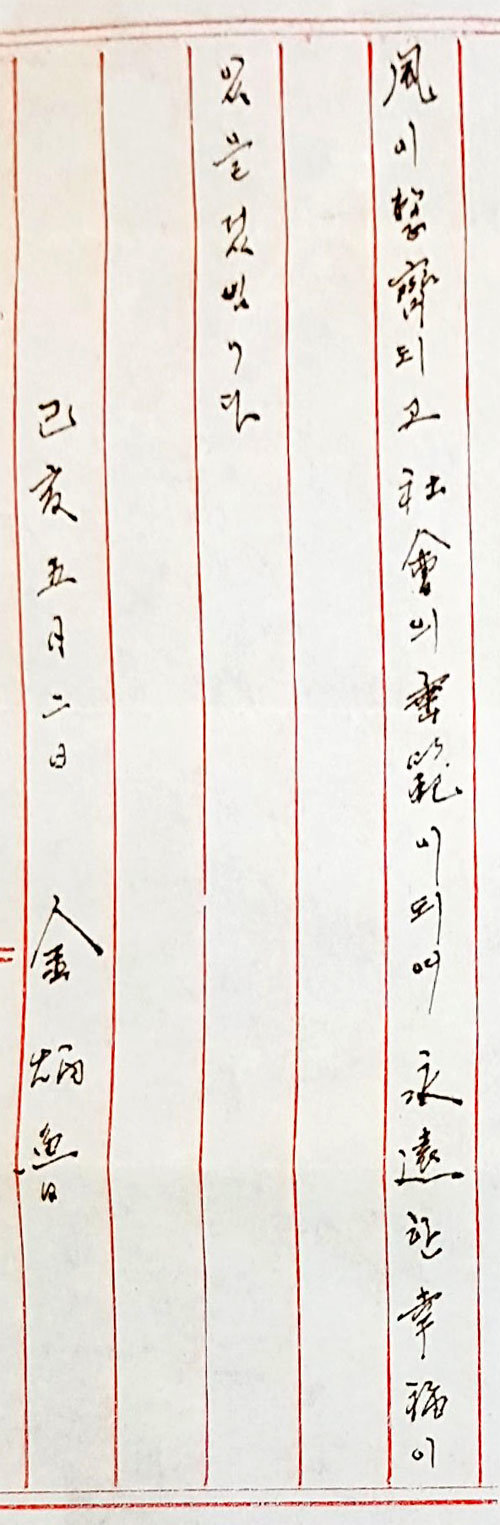 風이整齊되고 社會의垂範이되여 永遠한幸福이
있을것입니다
己亥五月二日 金炳魯